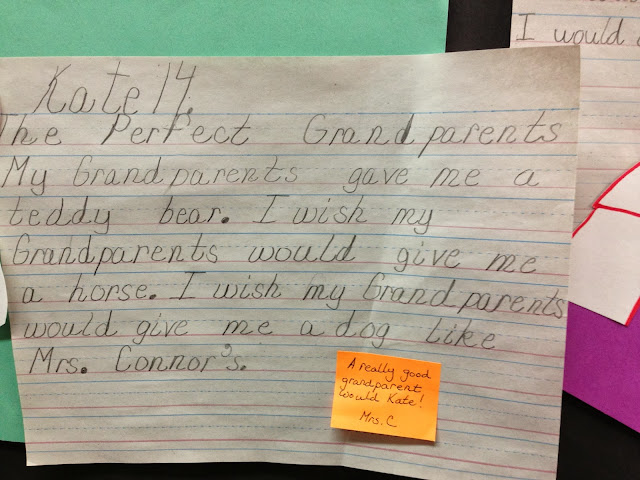 Kate 14.
The Perfect Grandparents
My Grandparents gave me a
teddy bear. I wish my
Grandparents would give me
a horse. I wish my Grandparents
would give me a dog like
Mrs. Connor's.
A really good
grandparent
would Kate!
Mrs. C
I would